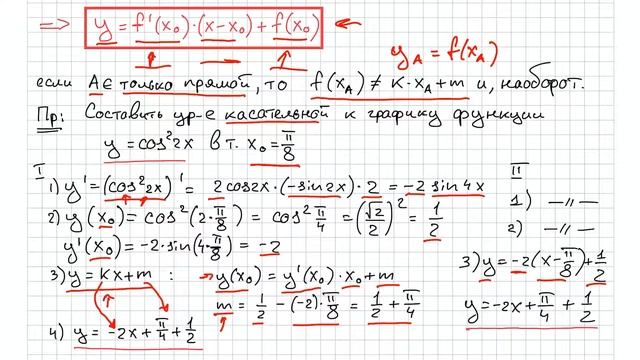 => y = f'(x₀)·(x-x₀) + f(x₀) ←
y_A = f(x_A)
если A ∈ только прямой, то f(x_A) ≠ k·x_A + m и, наоборот.
Пр: Составить ур-е касательной к графику функции
y = cos²2x в т. x₀ = π/8
I
1) y' = (cos²2x)' = 2cos2x·(-sin2x)·2 = -2 sin4x
2) y(x₀) = cos²(2·π/8) = cos² π/4 = (√2/2)² = 1/2
y'(x₀) = -2·sin(4·π/8) = -2
3) y = kx+m : → y(x₀) = y'(x₀)·x₀ + m
m = 1/2 - (-2)·π/8 = 1/2 + π/4
4) y = -2x + π/4 + 1/2
II
1) —〃—
2) —〃—
3) y = -2(x - π/8) + 1/2
y = -2x + π/4 + 1/2